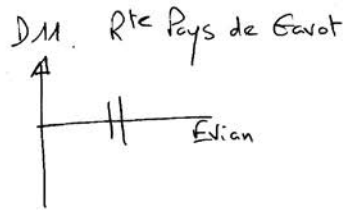 D11. Rte Pays de Gavot
Evian